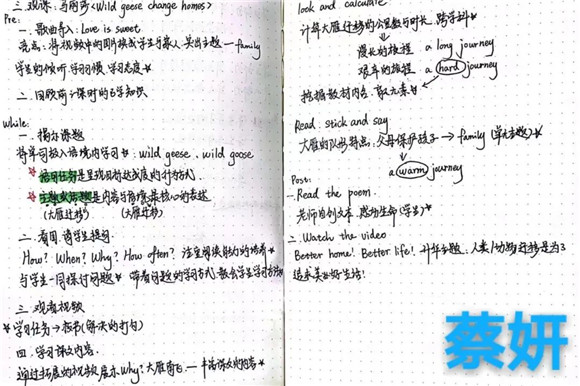 三、观课:《Wild geese change homes》
Pre:
一、歌曲导入: Love is sweet
亮点: 将视频中的图片换成学生与家人,突出主题 — family
学生的倾听、学习习惯、学习态度☆
二、回顾前一课时的所学知识
While:
一、揭示课题
将单词放入语境内学习☆: wild geese、wild goose
☆ 学习任务是呈现目标达成度的行为方式.
☆ 主题或话题是内容与情境最核心的表达
(大雁迁移) (大雁迁移)
二、看图,请学生提问.
How? When? Why? How often? 注重阅读能力的培养☆
与学生一同探讨问题☆ 带着问题的学习方式,教会学生学习方法
三、观看视频
☆ 学习任务→板书(解决的打勾)
四、学习课文内容.
通过拓展的视频展示 Why? 大雁南飞 — 丰富课文的内容☆
look and calculate
计算大雁迁移的公里数与时长,跨学科☆
漫长的旅程 a long journey
艰辛的旅程 a hard journey
挖掘教材内容,
Read, stick and say
大雁的队形特点: 父母保护孩子 → family (单元主题)☆
a warm journey
Post:
一. Read the poem.
老师自创文本,感动生命(学生)☆
二. Watch the video
Better home! Better life! 升华主题,人类/动物迁移是为了
追求美好生活!
蔡妍